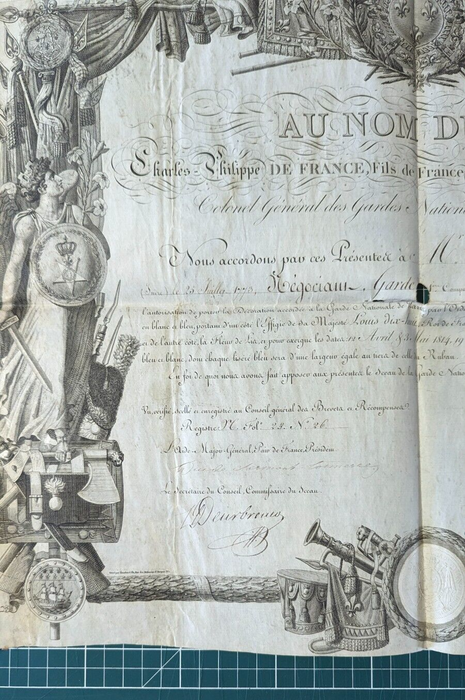 AU NOM D
Charles-Philippe DE FRANCE, Fils de France
Colonel Général des Gardes Nation
Nous accordons par ces Présentes à M.
Négociant, Garde
l'autorisation de porter la Décoration accordée à la Garde Nationale de
en blanc & bleu, portant d'un côté l'Effigie de Sa Majesté Louis dix-huit, Roi de Fran
et de l'autre côté, la Fleur de Lis, et pour exergue les dates: 12 Avril & 3 Mai 1814, 19
bleu ciblanc, dont chaque liseré bleu sera d'une largeur égale au tiers de celle du Ruban.
En foi de quoi nous avons fait apposer aux présentes le Sceau de la Garde Natio
Vu vérifié, scellé et enregistré au Conseil général des Brevets et Récompenses
Registre M. fol. 23. N.° 26.
L'Aide-Major-Général, Pair de France, Président
Le Secrétaire du Conseil, Commissaire du Sceau